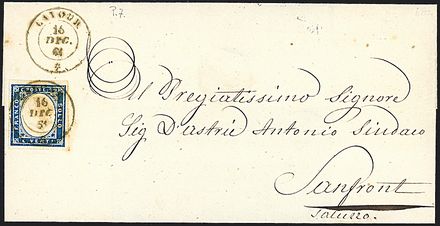 P.7.
CAVOUR
16
DIC.
61
16
DIC.
61
FRANCO
BOLLO
Al Pregiatissimo Signore
Sig D'Astrie Antonio Sindaco
Sanfront
Saluzzo.